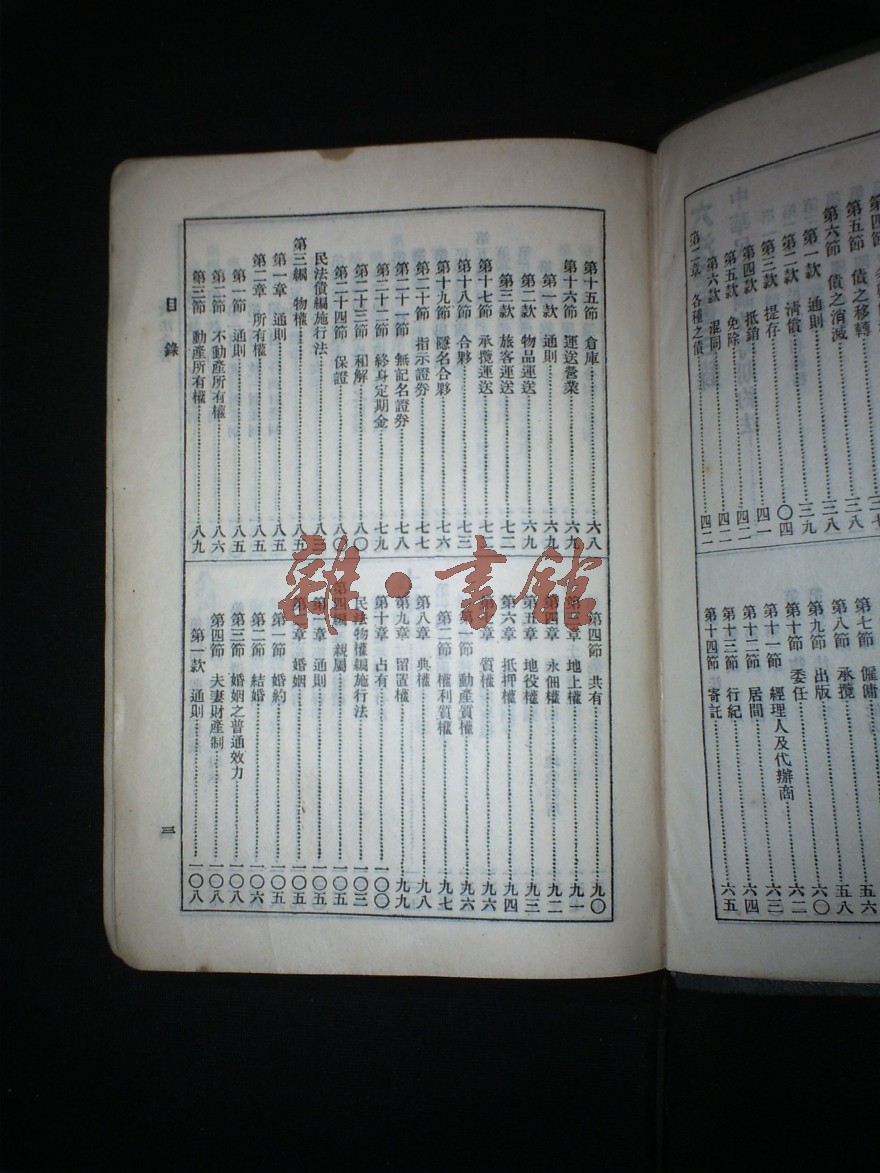 第四節
第五節 債之移轉 三七
第六節 債之消滅 三八
第一款 通則 三八
第二款 清償 三九
第三款 提存 〇四
第四款 抵銷 四一
第五款 免除 四二
第六款 混同 四二
第二章 各種之債 四二
第七節 僱傭
第八節 承攬 五六
第九節 出版 五八
第十節 委任 六〇
第十一節 經理人及代辦商 六二
第十二節 居間 六三
第十三節 行紀 六四
第十四節 寄託 六五
第十五節 倉庫 六八
第十六節 運送營業 六九
第一款 通則 六九
第二款 物品運送 六九
第三款 旅客運送 七二
第十七節 承攬運送 七二
第十八節 合夥 七三
第十九節 隱名合夥 七六
第二十節 指示證券 七七
第二十一節 無記名證券 七八
第二十二節 終身定期金 七九
第二十三節 和解 八〇
第二十四節 保證 八〇
民法債編施行法 八三
第三編 物權 八五
第一章 通則 八五
第二章 所有權 八五
第一節 通則 八五
第二節 不動產所有權 八六
第三節 動產所有權 八九
第四節 共有 九〇
第三章 地上權 九一
第四章 永佃權 九二
第五章 地役權 九三
第六章 抵押權 九四
第七章 質權 九六
第一節 動產質權 九六
第二節 權利質權 九七
第八章 典權 九八
第九章 留置權 九九
第十章 占有 一〇〇
民法物權編施行法 一〇三
第四編 親屬 一〇五
第一章 通則 一〇五
第二章 婚姻 一〇五
第一節 婚約 一〇五
第二節 結婚 一〇六
第三節 婚姻之普通效力 一〇八
第四節 夫妻財產制 一〇八
第一款 通則 一〇八
目錄
三
雜·書館